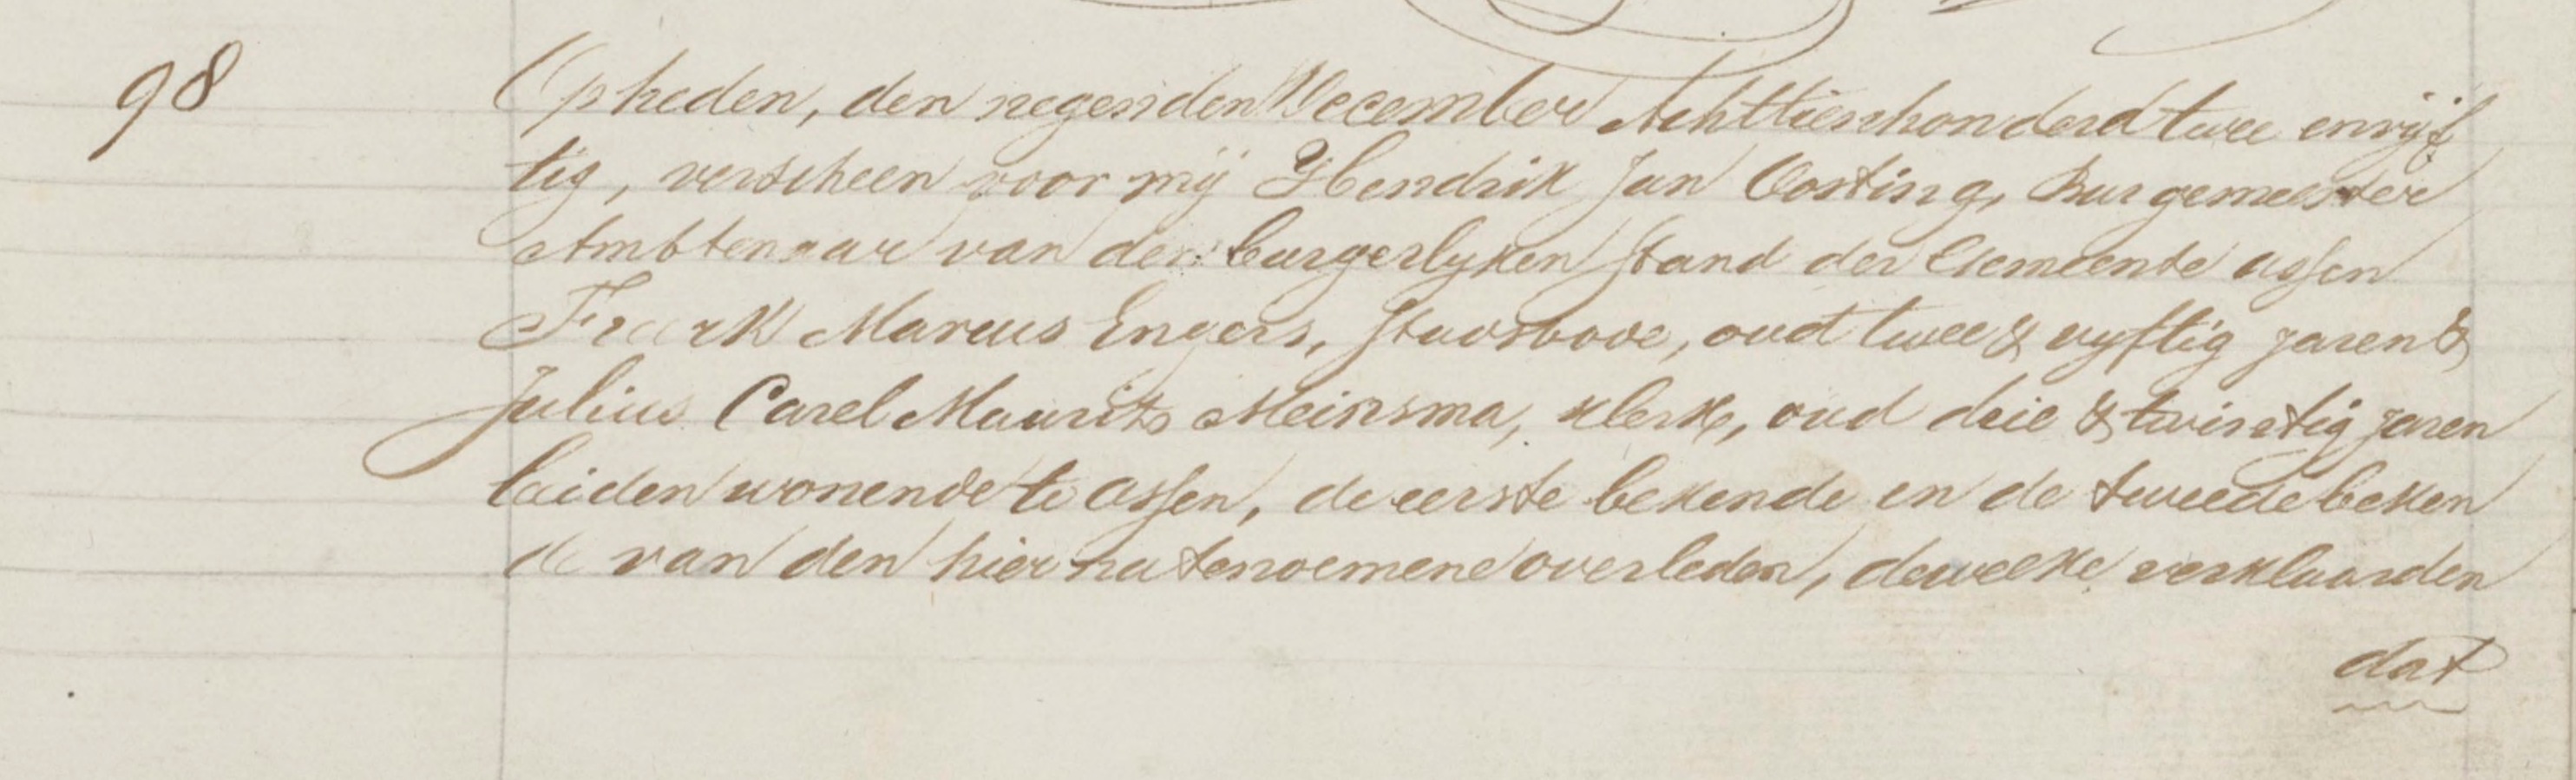 98
Opheden, den negenden December Achttienhonderd twee envijf
tig, verscheen voor mij Hendrik Jan Oosting, Burgemeester
Ambtenaar van den burgerlyken stand der Gemeente assen
Frank Marcus Engers, stadsbode, oud twee & vyftig jaren &
Julius Carel Maurits Meinsma, klerk, oud drie & twintig jaren
beiden wonende te Assen, de eerste bekende en de tweede beken
de van den hier na tenoemene overleden, dewelke verklaarden
dat